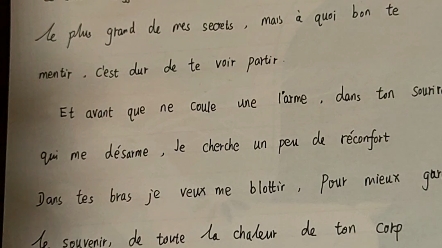 le plus grand de mes secrets, mais à quoi bon te
mentir. C'est dur de te voir partir.
Et avant que ne coule une l'arme, dans ton sourire
qui me désarme, Je cherche un peu de réconfort
Dans tes bras je veux me blottir, Pour mieux gar
le souvenir, de toute la chaleur de ton corp